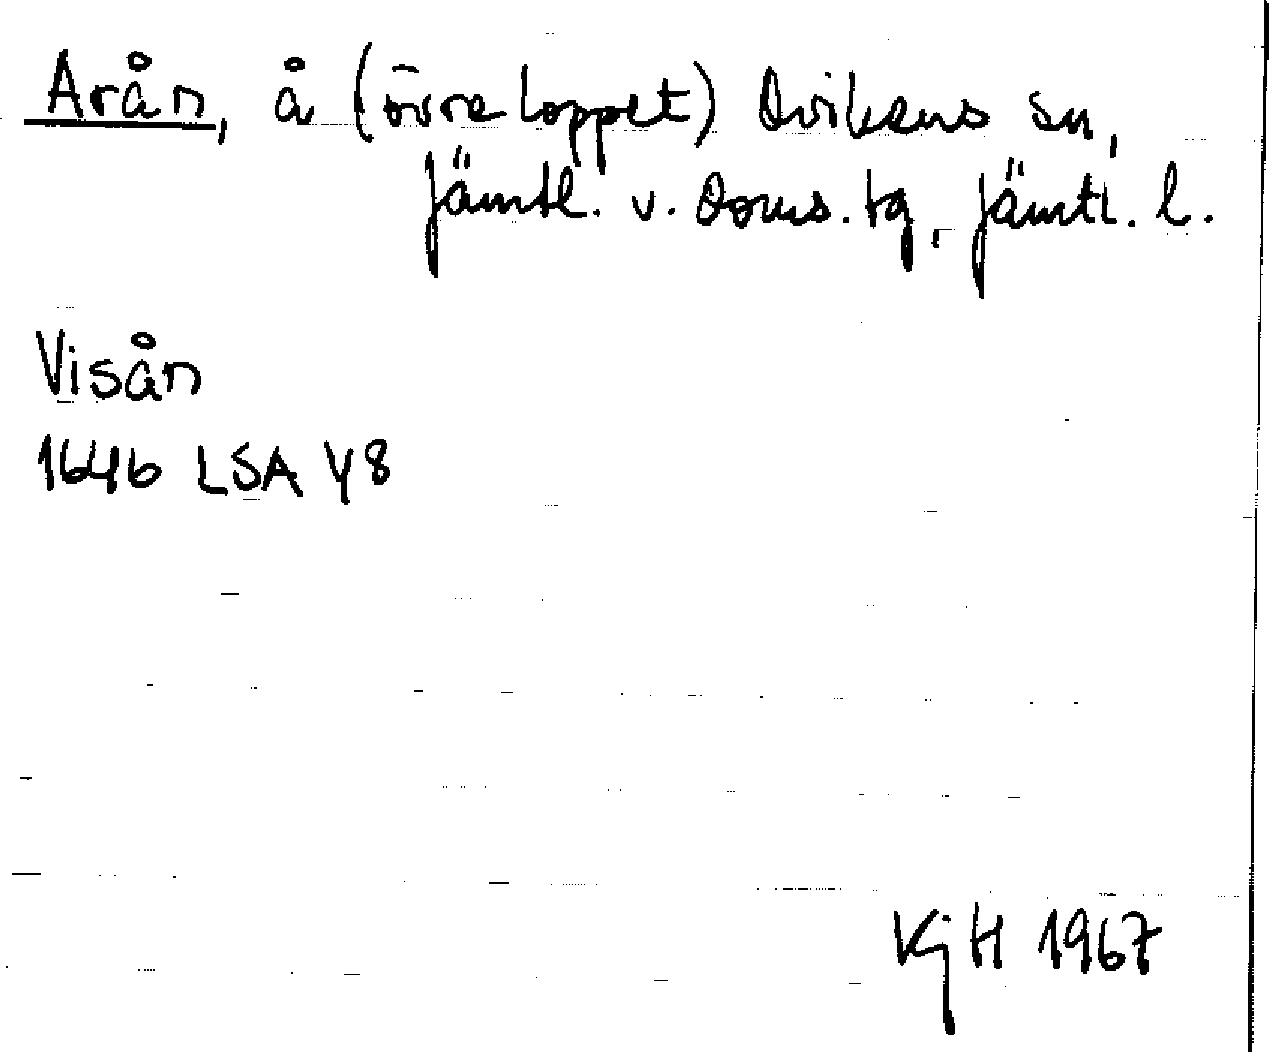 Arån, å (övre loppet) Ovikens sn,
Jämtl. v. doms. tg, Jämtl. l.
Visån
1646 LSA Y8
KjH 1967